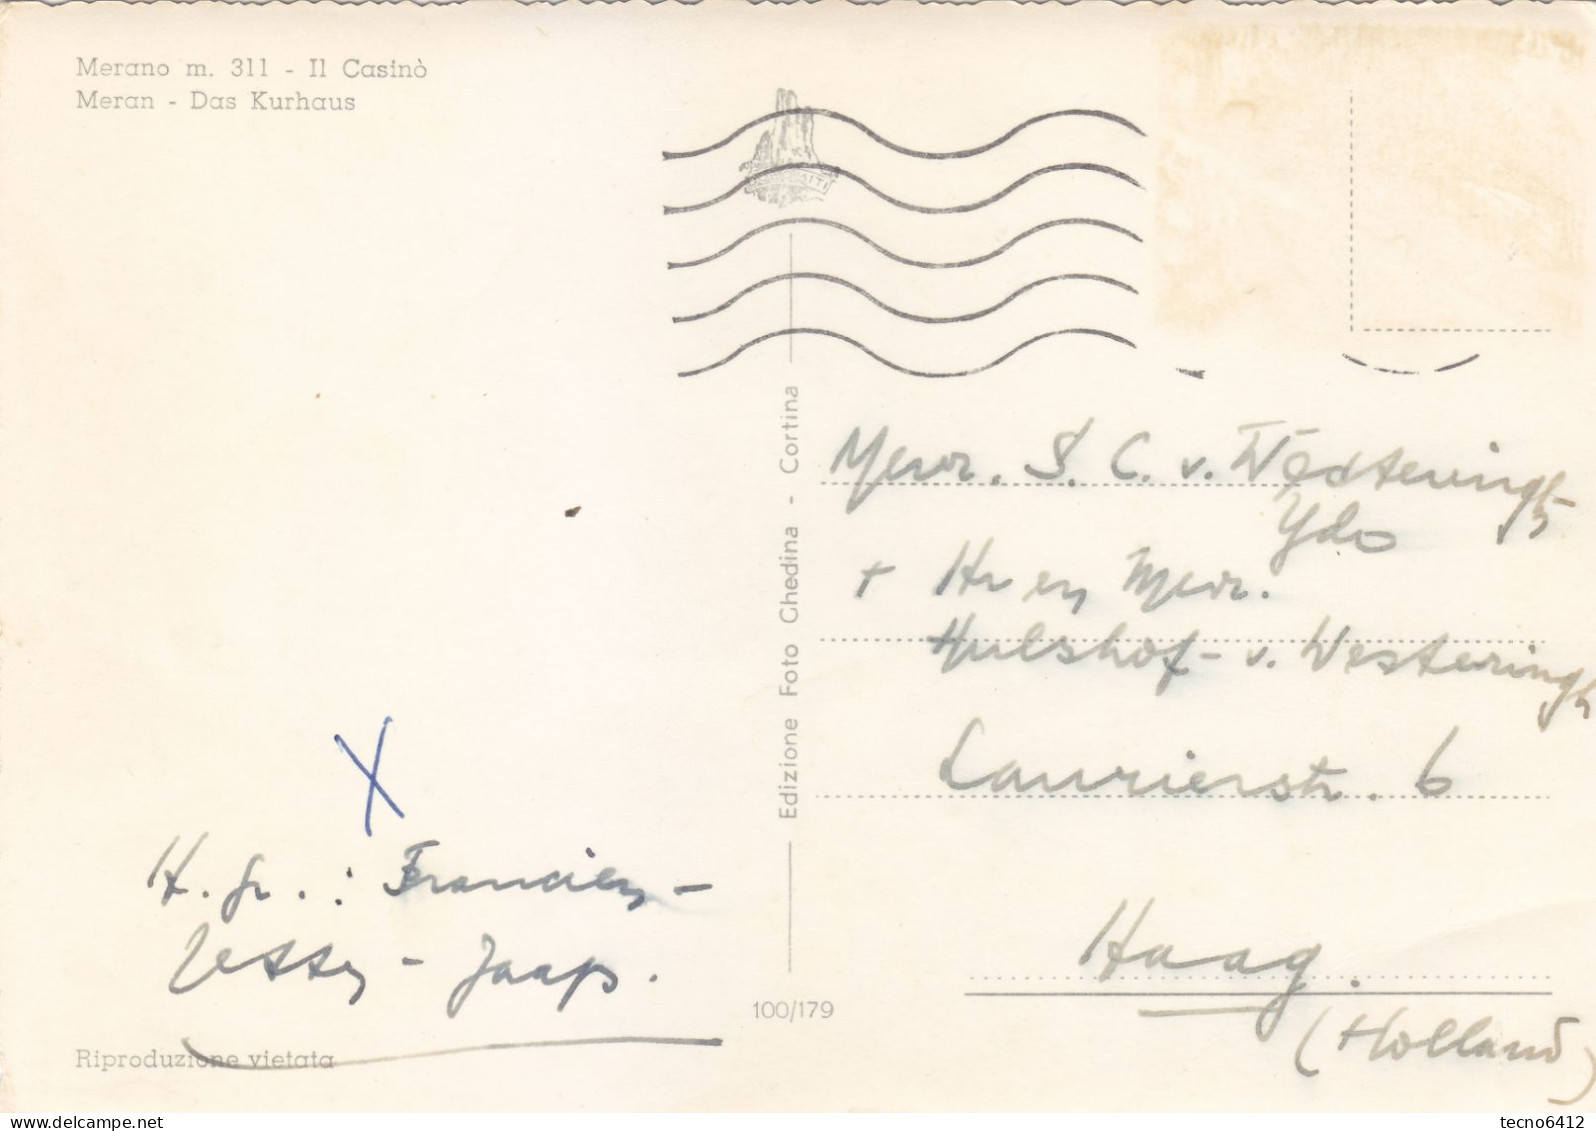 Merano m. 311 - Il Casinò
Meran - Das Kurhaus
Edizione Foto Ghedina - Cortina
Mevr. S. C. v. Westeringh
Ydo
+ Hr en Mevr.
Hulshof - v. Westeringh
Laurierstr. 6
Haag.
(Holland)
X
H. gr. : Francien -
- Jaap.
100/179
Riproduzione vietata
tecno6412